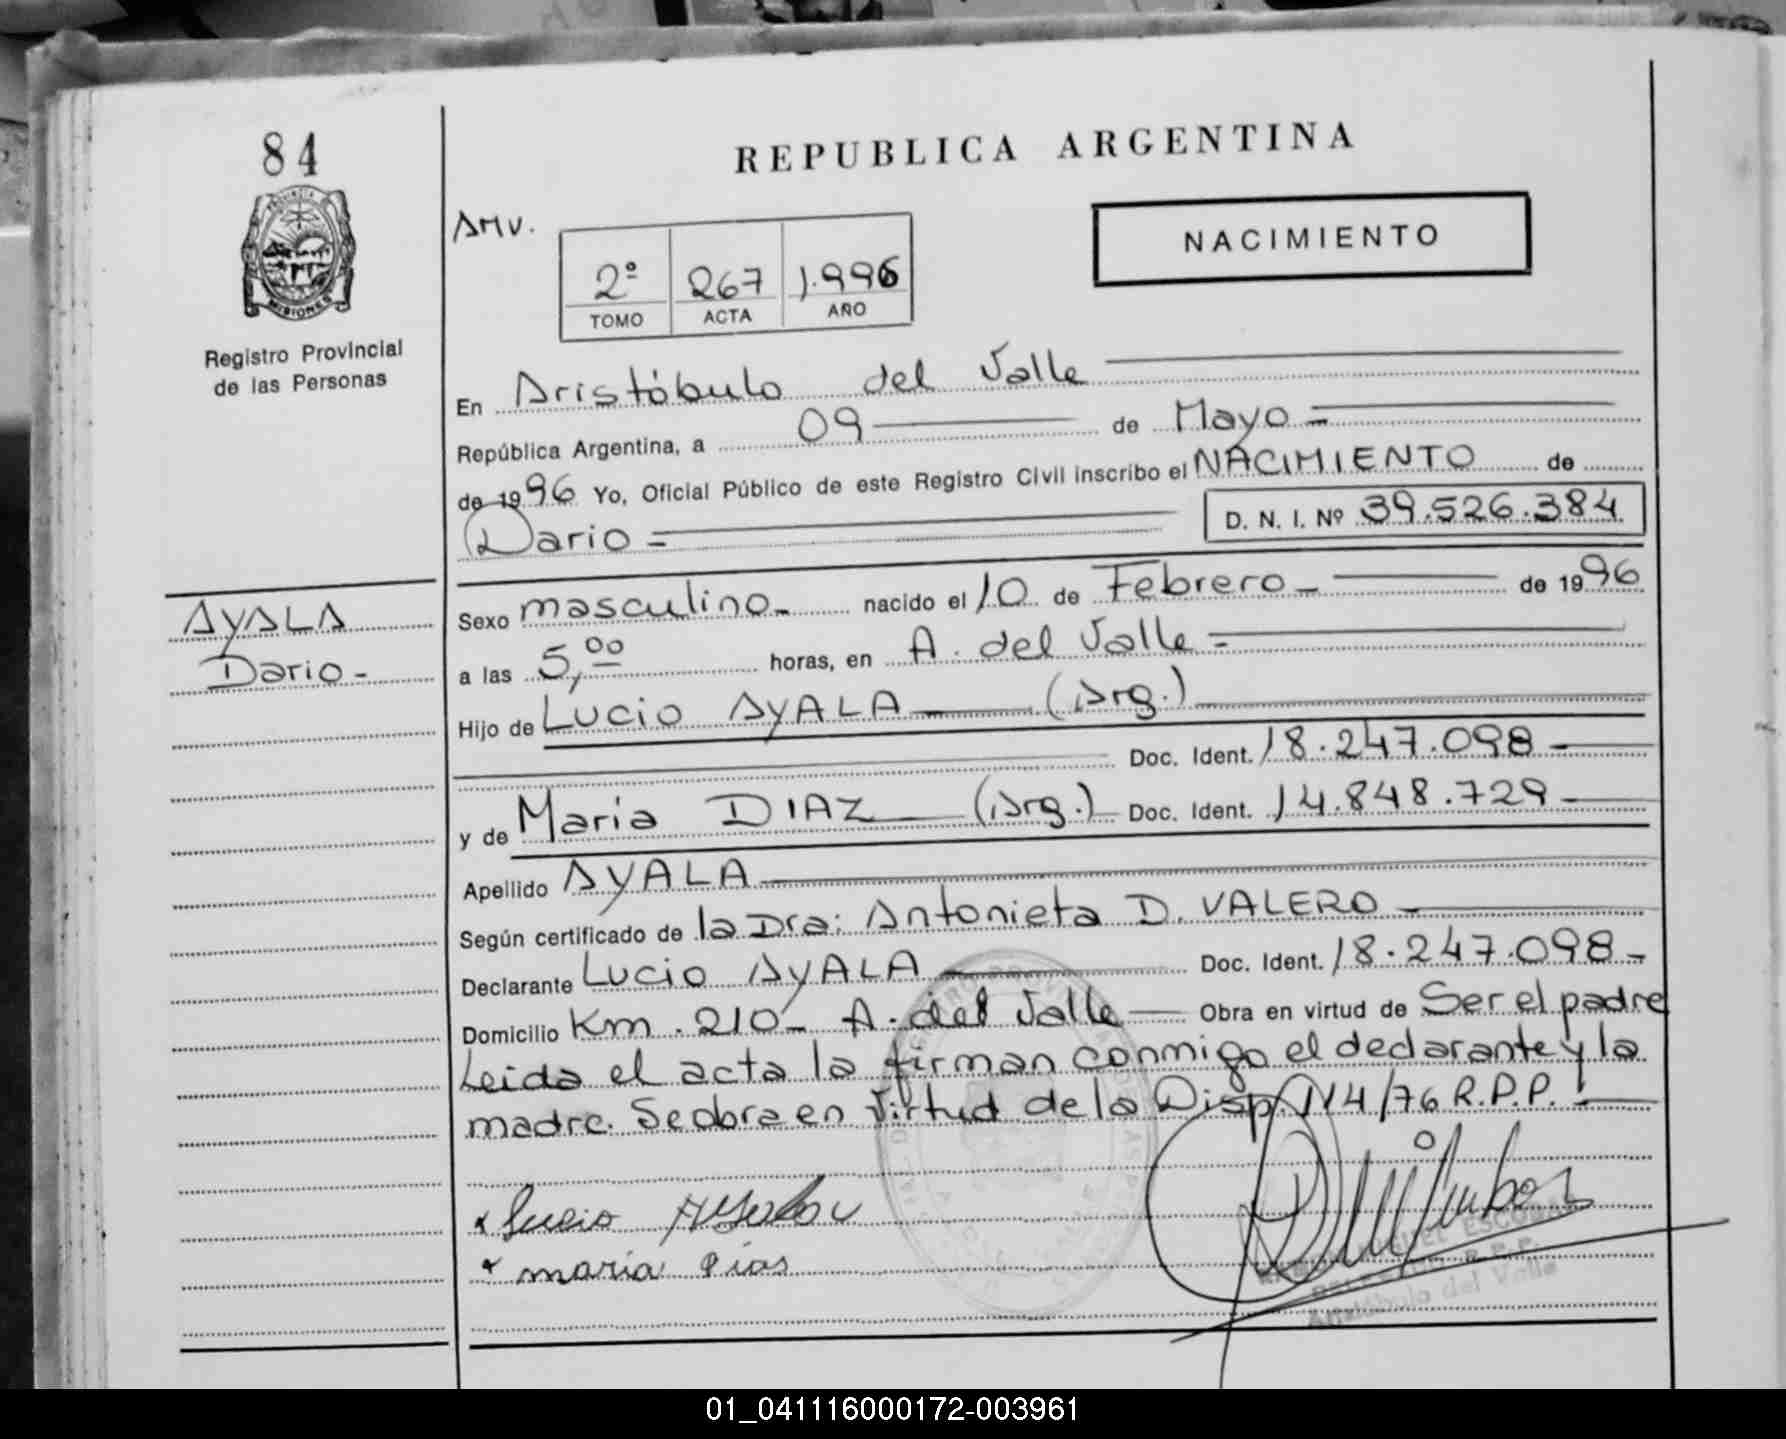 84
REPUBLICA ARGENTINA
AMV.
NACIMIENTO
2º 267 1.996
TOMO ACTA AÑO
MISIONES
Registro Provincial
de las Personas
En Aristóbulo del Valle
República Argentina, a 09 de Mayo
de 1996 Yo, Oficial Público de este Registro Civil inscribo el NACIMIENTO de
Dario D. N. I. Nº 39.526.384
AYALA
Dario -
Sexo masculino - nacido el 10 de Febrero - de 1996
a las 5,00 horas, en A. del Valle -
Hijo de Lucio AYALA (Arg.)
Doc. Ident. 18.247.098 -
y de Maria DIAZ (Arg.) Doc. Ident. 14.848.729 -
Apellido AYALA
Según certificado de la Dra: Antonieta D. VALERO -
Declarante Lucio AYALA Doc. Ident. 18.247.098 -
Domicilio Km. 210 - A. del Valle Obra en virtud de Ser el padre
Leida el acta la firman conmigo el declarante y la
madre. Se obra en virtud de la Disp. Nº 4/76 R.P.P.
x Lucio Ayala
x maria Dias
MIGUEL ESCOBAR
R.P.P.
Aristóbulo del Valle
01_041116000172-003961